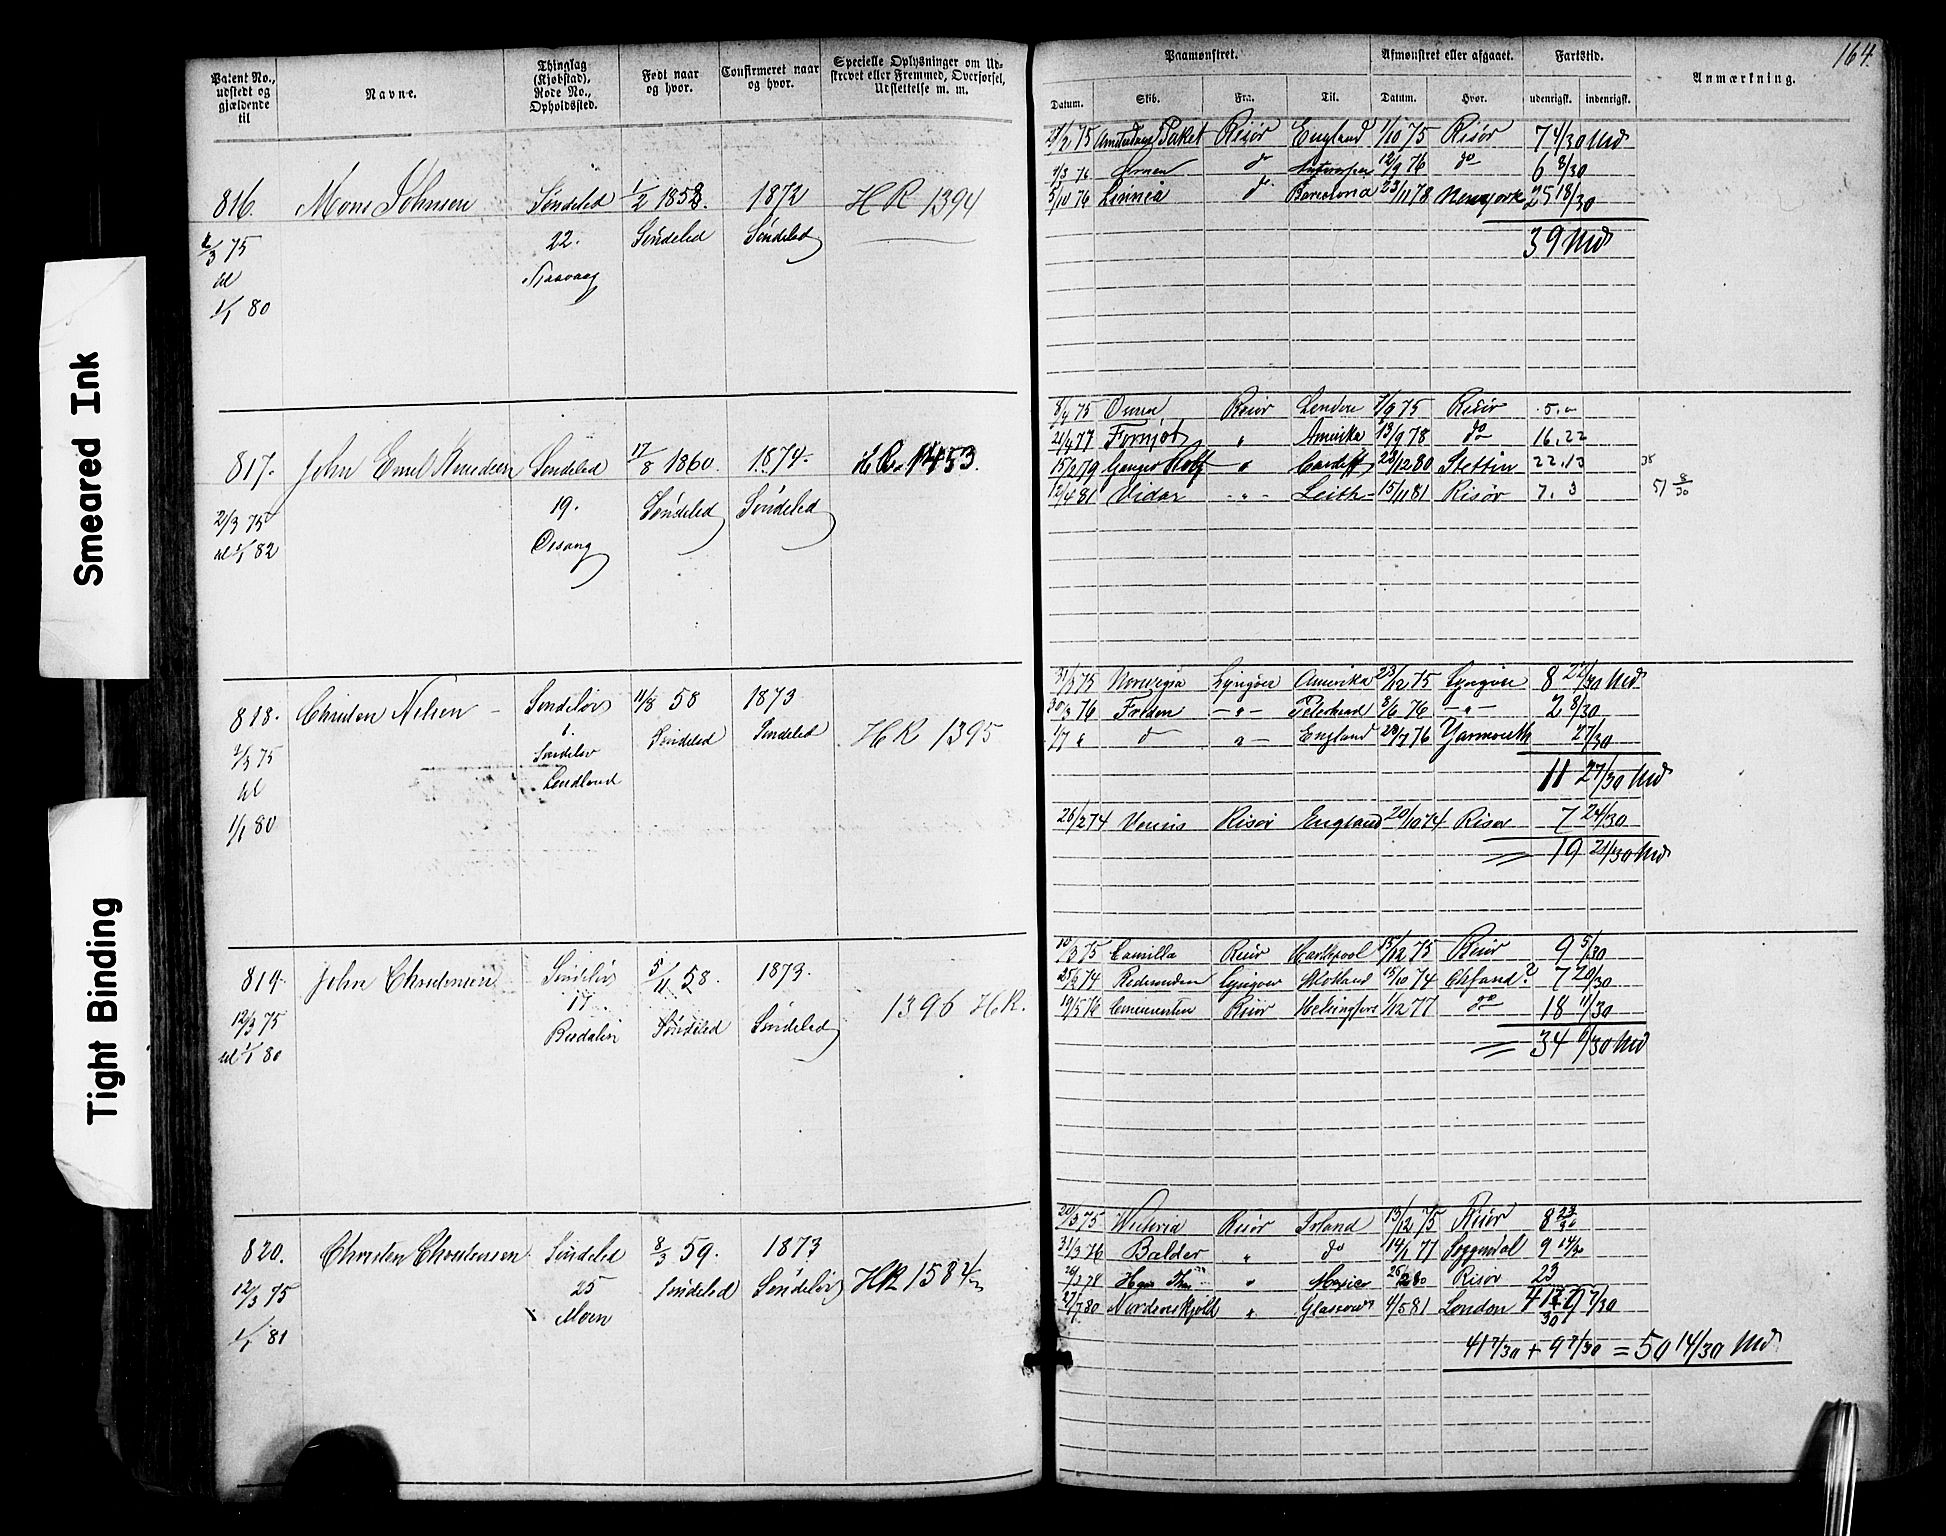 164.
Patent No., udstedt og gjældende til
Navne.
Thinglag (Kjøbstad), Rode No., Opholdssted.
Født naar og hvor.
Confirmeret naar og hvor.
Specielle Oplysninger om Udskrevet eller Fremmed, Overførsel, Udslettelse m. m.
Paamønstret.
Afmønstret eller afgaaet.
Fartstid.
Anmærkning.
Datum. Skib. Fra. Til. Datum. Hvor. udenrigsk. indenrigsk.
Smeared Ink
Tight Binding
816. Mons Johnsen Søndeled 1/2 1853. 1872 HR 1394
2/3 75 22. Søndeled Søndeled
til
1/1 80
Paket Risør England 1/10 75 Risør 7 4/30 Md
1/3 76 Ørnen do Antwerpen 12/9 76 do 6 8/30
5/10 76 Linnea do Barcelona 23/11 78 Newyork 25 18/30
39 Md
817. John Emil Knudsen Søndeled 17/8 1860. 1874. HR 1453.
2/3 75 19. Søndeled Søndeled
til 1/1 82
8/4 75 Risør London 7/9 75 Risør 5.0
21/4 77 Fornjot " Amerika 13/9 78 do 16.22
15/2 79 Ganger Rolf " Cardiff 28/12 80 Stettin 22.13
12/4 81 Vidar - " - Leith 15/11 81 Risør 7. 3 51 8/30
818. Christen Nilsen - Søndeløv 11/8 58 1873
2/3 75 Søndeled Søndeled HR 1395
til Søndeløv
1/1 80
31/3 75 Norvegia Lyngøer Amerika 23/12 75 Lyngøer 8 22/30 Md
30/3 76 - " - Peterhead 8/6 76 - " - 2 8/30
1/7 " do " - England 28/7 76 Yarmouth 27/30
11 27/30 Md
26/2 74 Venus Risør England 20/10 74 Risør 7 24/30
19 21/30 Md
819. John Christensen Søndeløv 5/11 58. 1873.
12/3 75 17 Søndeled Søndeled 1396 HR.
til 1/1 80
15/3 75 Camilla Risør Hartlepool 15/12 75 Risør 9 5/30
25/2 74 Lyngøer Skotland 15/10 74 ? 7 20/30
19/5 76 Risør Helsingfors 1/12 77 do 18 11/30
34 6/30 Md
820. Christen Christensen Søndeled 8/3 59. 1873
12/3 75 25 Søndeled Søndeløv HR 1584
1/1 81 Moen
20/3 75 Victoria Risør Irland 13/12 75 Risør 8 23/30
31/3 76 Balder " do 14/1 77 Soggendal 9 14/30
26/2 78 " Mexico 26/2 80 Risør 23
27/7 80 Nordenskjold " Glasgow 4/5 81 London 9 7/30
41 7/30 + 9 7/30 = 50 14/30 Md